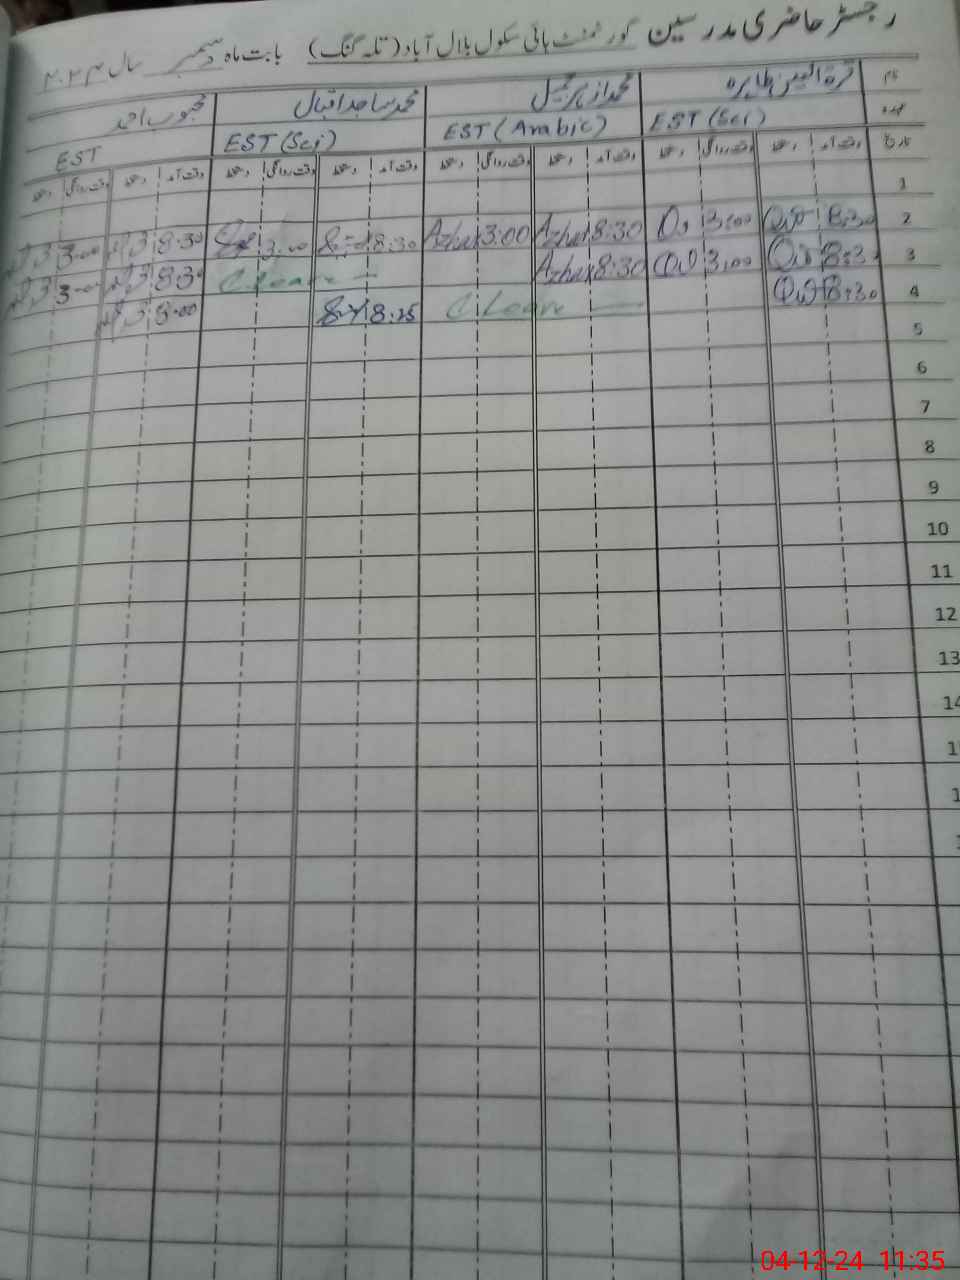 رجسٹر حاضری مدرسین گورنمنٹ ہائی سکول بلال آباد (تلہ گنگ) بابت ماہ دسمبر سال ۲۰۲۴
نام قرۃ العین طاہرہ محمد ساجد اقبال محبوب احمد
عہدہ EST (Sci) EST (Arabic) EST (Sci) EST
تاریخ وقت آمد دستخط وقت روانگی دستخط وقت آمد دستخط وقت روانگی دستخط وقت آمد دستخط وقت روانگی دستخط وقت آمد دستخط وقت روانگی دستخط
1
2 8:30 3:00 8:30 Azhar 3:00 Azhar 8:30 3:00 8:30 3:00
3 8:3 3:00 8:30 Azhar C Leave 8:30 3:00
4 8:30 C Leave 8:25 8:00
5
6
7
8
9
10
11
12
13
04-12-24 11:35